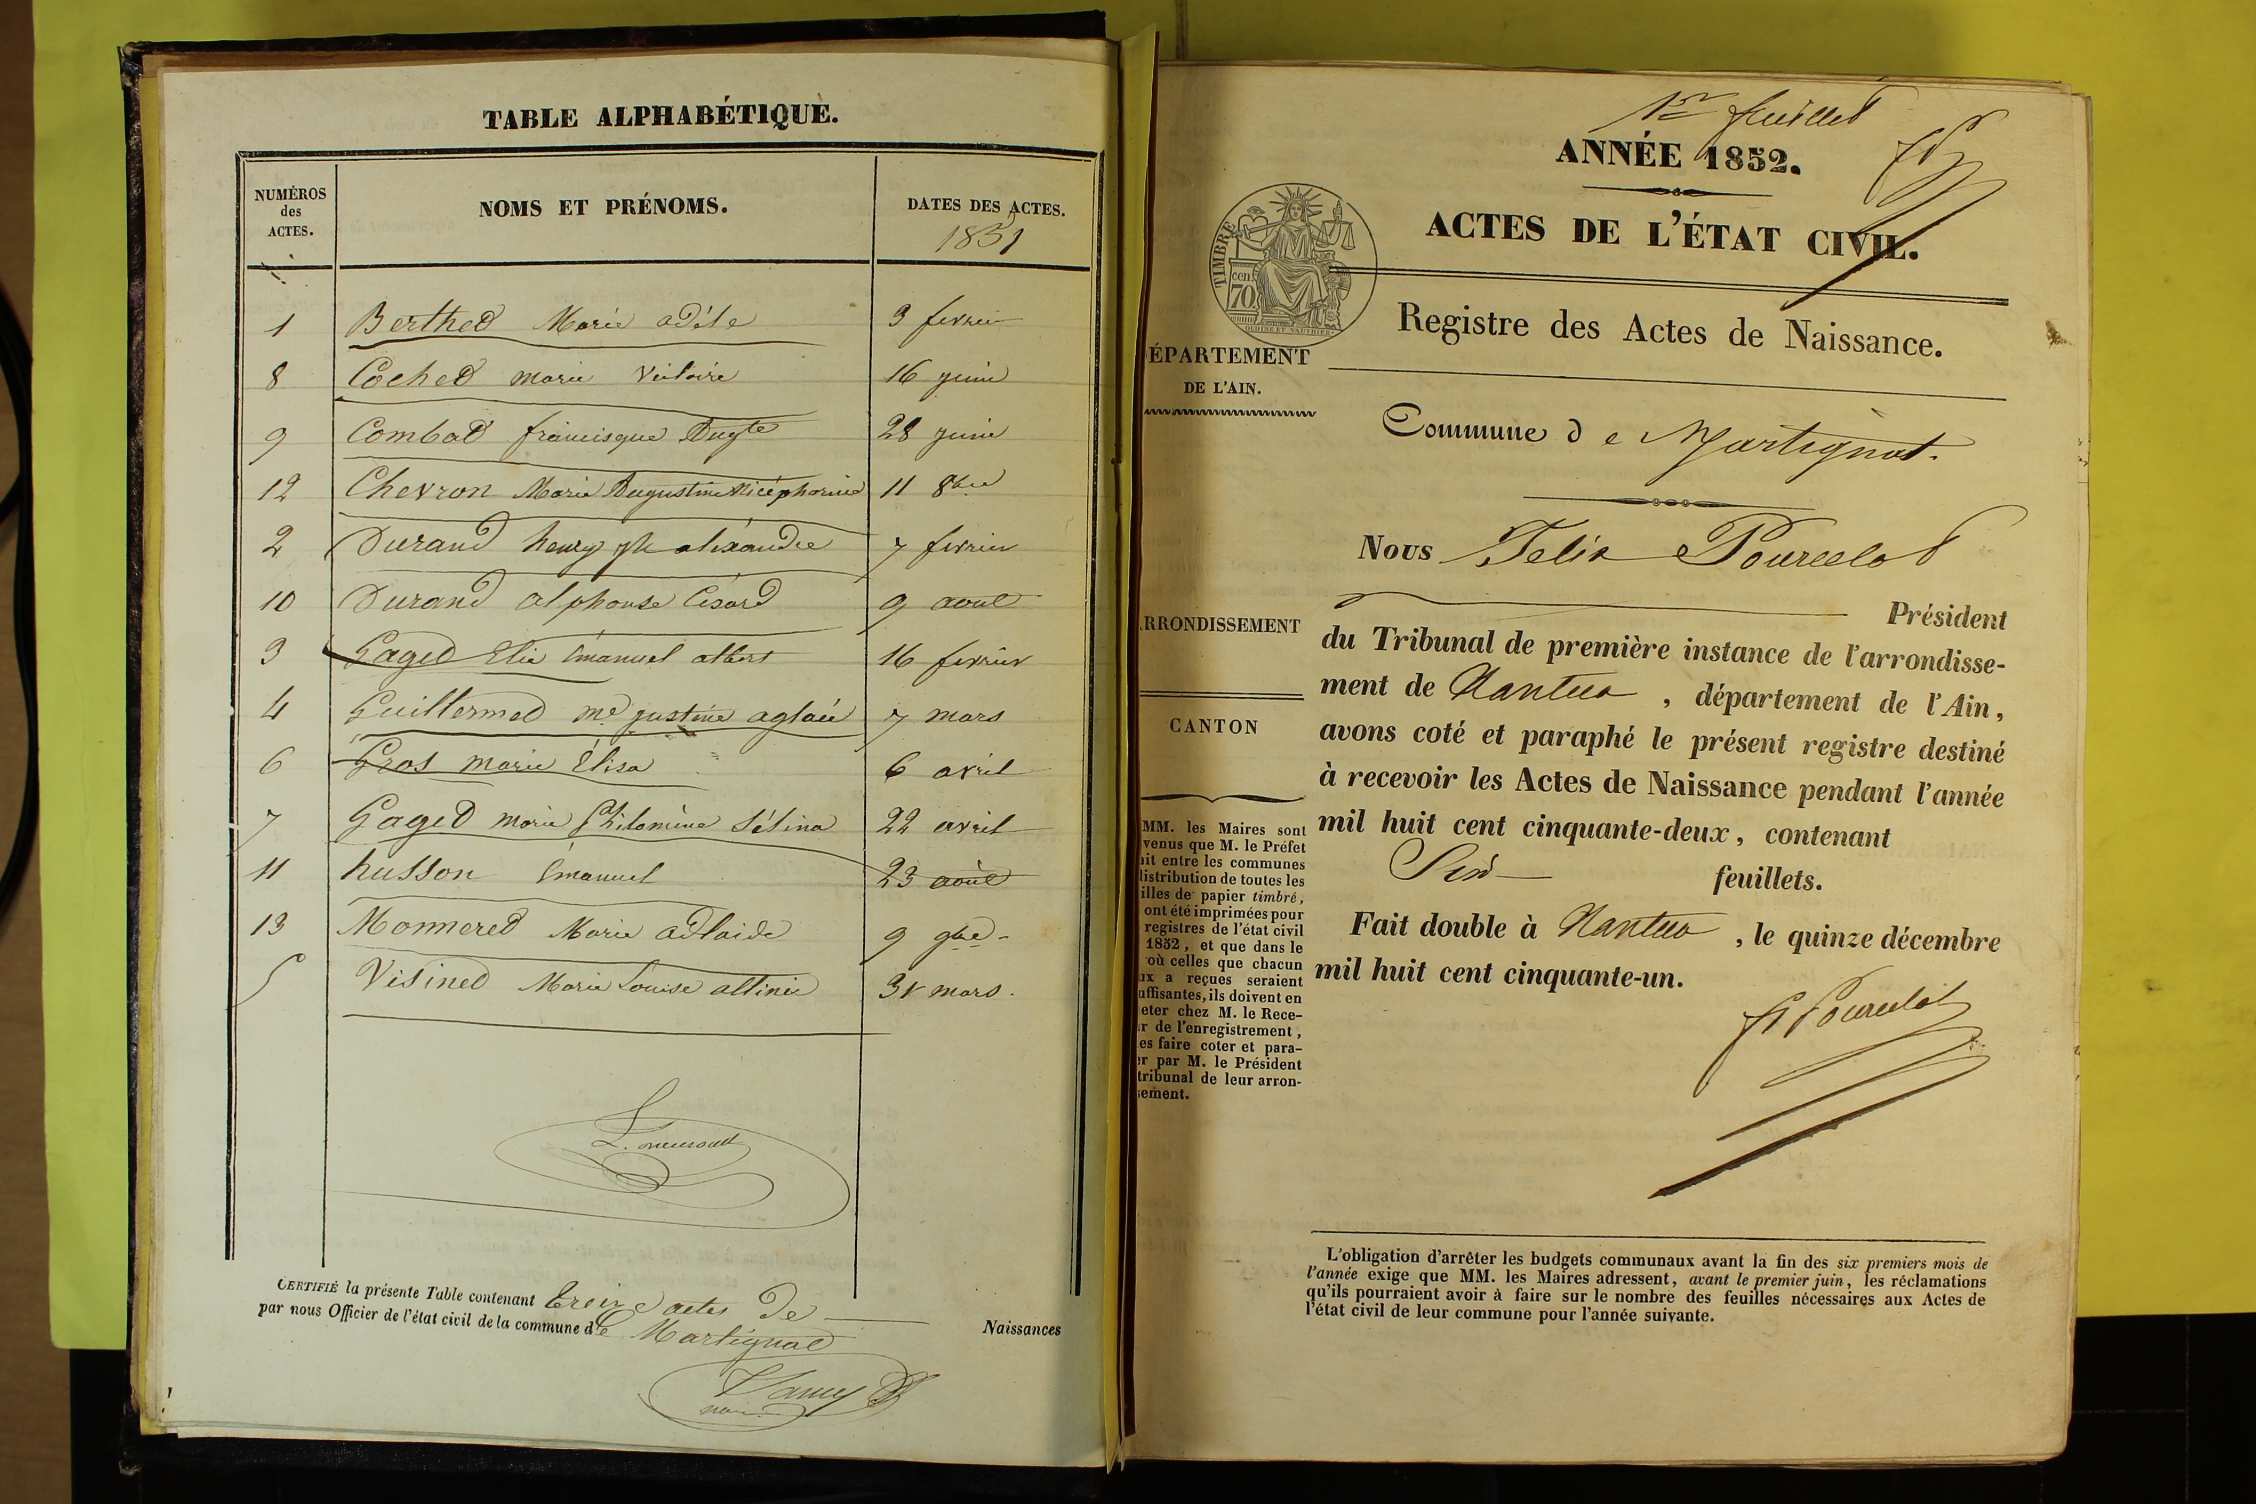 TABLE ALPHABÉTIQUE.
NUMÉROS des ACTES. NOMS ET PRÉNOMS. DATES DES ACTES.
1851
1 Berthed Marie adèle 3 fevrier
8 Coched marie Victoire 16 juin
9 Combad francisque Augte 28 juin
12 Chevron Marie Augustine Nicéphorine 11 8bre
2 Durand henry jh alixandre 7 fevrier
10 Durand alphonse Césard 9 aout
3 Gaged Elie émanuel albert 16 fevrier
4 Guillermed me justine aglaée 7 mars
6 Gros marie Élisa 6 avril
7 Gaged marie Philomène Sélina 22 avril
11 husson émanuel 23 août
13 Monnered Marie adlaide 9 9bre
5 Visined Marie Louise altinie 31 mars.
CERTIFIÉ la présente Table contenant treize actes de Naissances
par nous Officier de l'état civil de la commune de Martignat
1er feuillet
ANNÉE 1852.
ACTES DE L'ÉTAT CIVIL.
TIMBRE
70 cen.
Registre des Actes de Naissance.
ÉPARTEMENT
DE L'AIN.
Commune de Martignat.
Nous Felix Pourcelot
Président
du Tribunal de première instance de l'arrondisse-
ment de Nantua, département de l'Ain,
avons coté et paraphé le présent registre destiné
à recevoir les Actes de Naissance pendant l'année
mil huit cent cinquante-deux, contenant
Six feuillets.
Fait double à Nantua, le quinze décembre
mil huit cent cinquante-un.
F. Pourcelot
RRONDISSEMENT
CANTON
MM. les Maires sont
venus que M. le Préfet
ait entre les communes
distribution de toutes les
illes de papier timbré,
ont été imprimées pour
registres de l'état civil
1852, et que dans le
où celles que chacun
ux a reçues seraient
uffisantes, ils doivent en
eter chez M. le Rece-
r de l'enregistrement,
es faire coter et para-
er par M. le Président
tribunal de leur arron-
sement.
L'obligation d'arrêter les budgets communaux avant la fin des six premiers mois de
l'année exige que MM. les Maires adressent, avant le premier juin, les réclamations
qu'ils pourraient avoir à faire sur le nombre des feuilles nécessaires aux Actes de
l'état civil de leur commune pour l'année suivante.